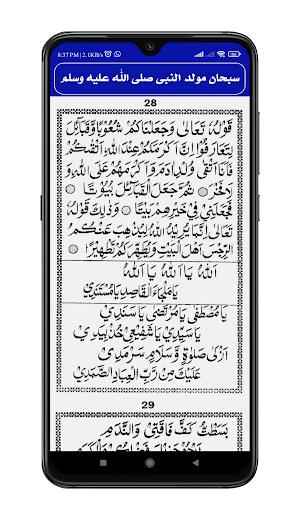 8:37 PM | 2.1KB/s
سبحان مولد النبى صلى الله عليه وسلم
28
قَوْلُهٗ تَعَالٰى وَجَعَلْنَاكُمْ شُعُوْبًا وَّقَبَآئِلَ
لِتَعَارَفُوْا اِنَّ اَكْرَمَكُمْ عِنْدَ اللهِ اَتْقٰىكُمْ
فَاَنَا اَتْقٰى وُلْدِ اٰدَمَ وَاَكْرَمُهُمْ عَلَى اللهِ وَ
لَا فَخْرَ ثُمَّ جَعَلَ الْقَبَآئِلَ بُيُوْتًا
فَجَعَلَنِيْ فِيْ خَيْرِهِمْ بَيْتًا وَذٰلِكَ قَوْلُهٗ
تَعَالٰى اِنَّمَا يُرِيْدُ اللهُ لِيُذْهِبَ عَنْكُمُ
الرِّجْسَ اَهْلَ الْبَيْتِ وَيُطَهِّرَكُمْ تَطْهِيْرًا
اَللهُ يَا اَللهُ يَا اَللهُ
يَا مَلْجَاَ الْقَاصِدِ يَا مُسْتَنَدِيْ
يَا مُصْطَفٰى يَا مُرْتَضٰى يَا سَنَدِيْ
يَا سَيِّدِيْ يَا شَفِيْعِيْ خُذْ بِيَدِيْ
اَزْكٰى صَلَاةٍ وَّسَلَامٍ سَرْمَدِيْ
عَلَيْكَ مِنْ رَّبِّ الْعِبَادِ الصَّمَدِيْ
29
بَسَطْتُ كَفَّ فَاقَتِيْ وَالنَّدَمِ